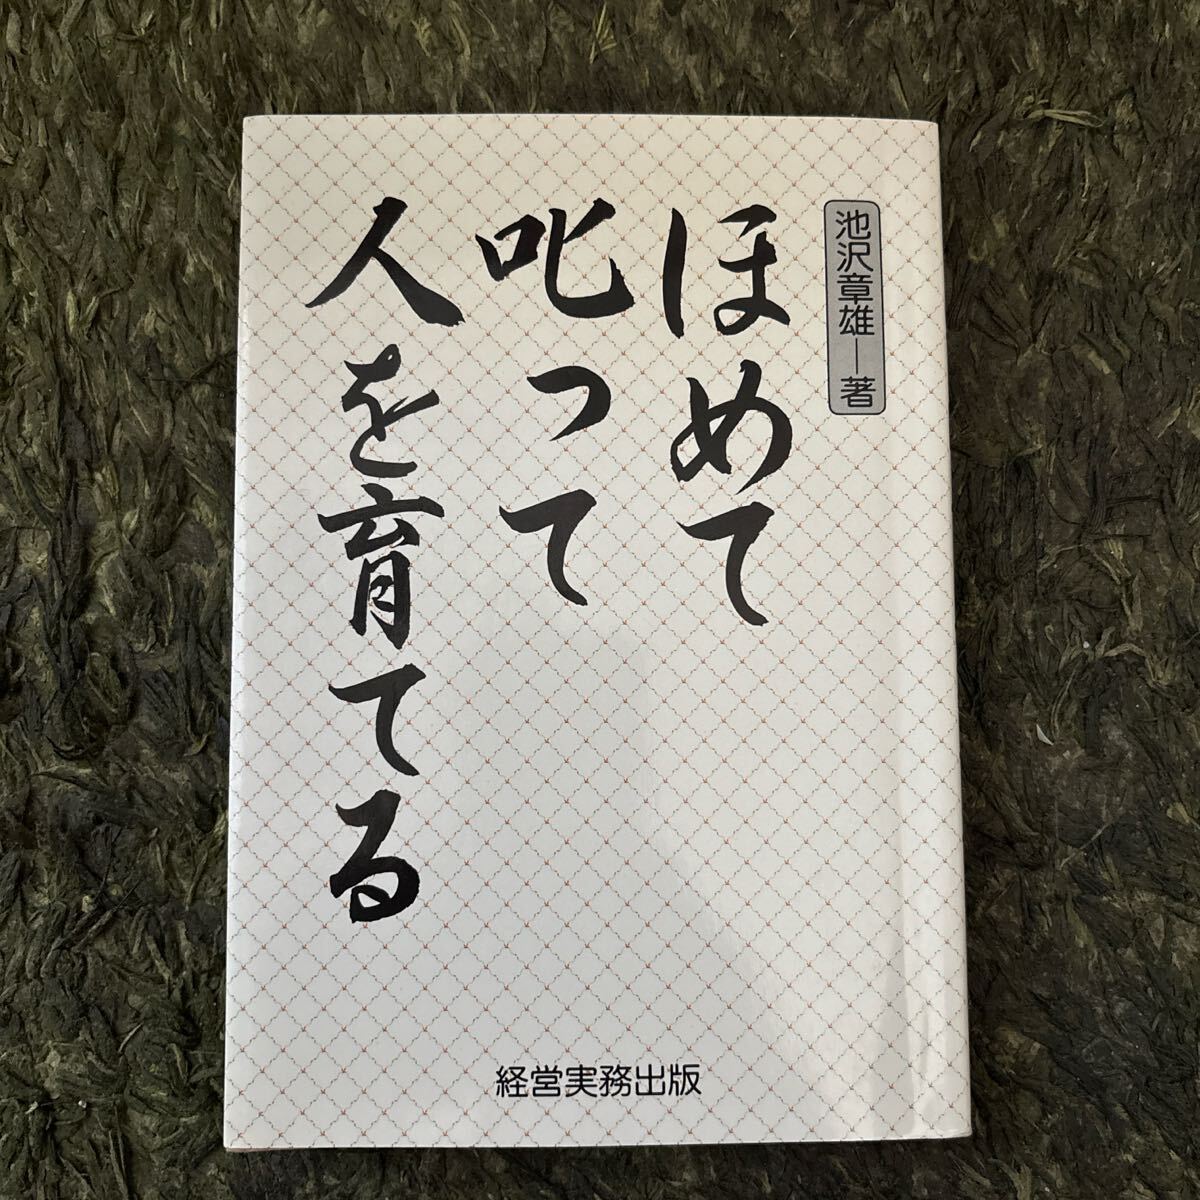 池沢章雄―著
ほめて
叱って
人を育てる
経営実務出版